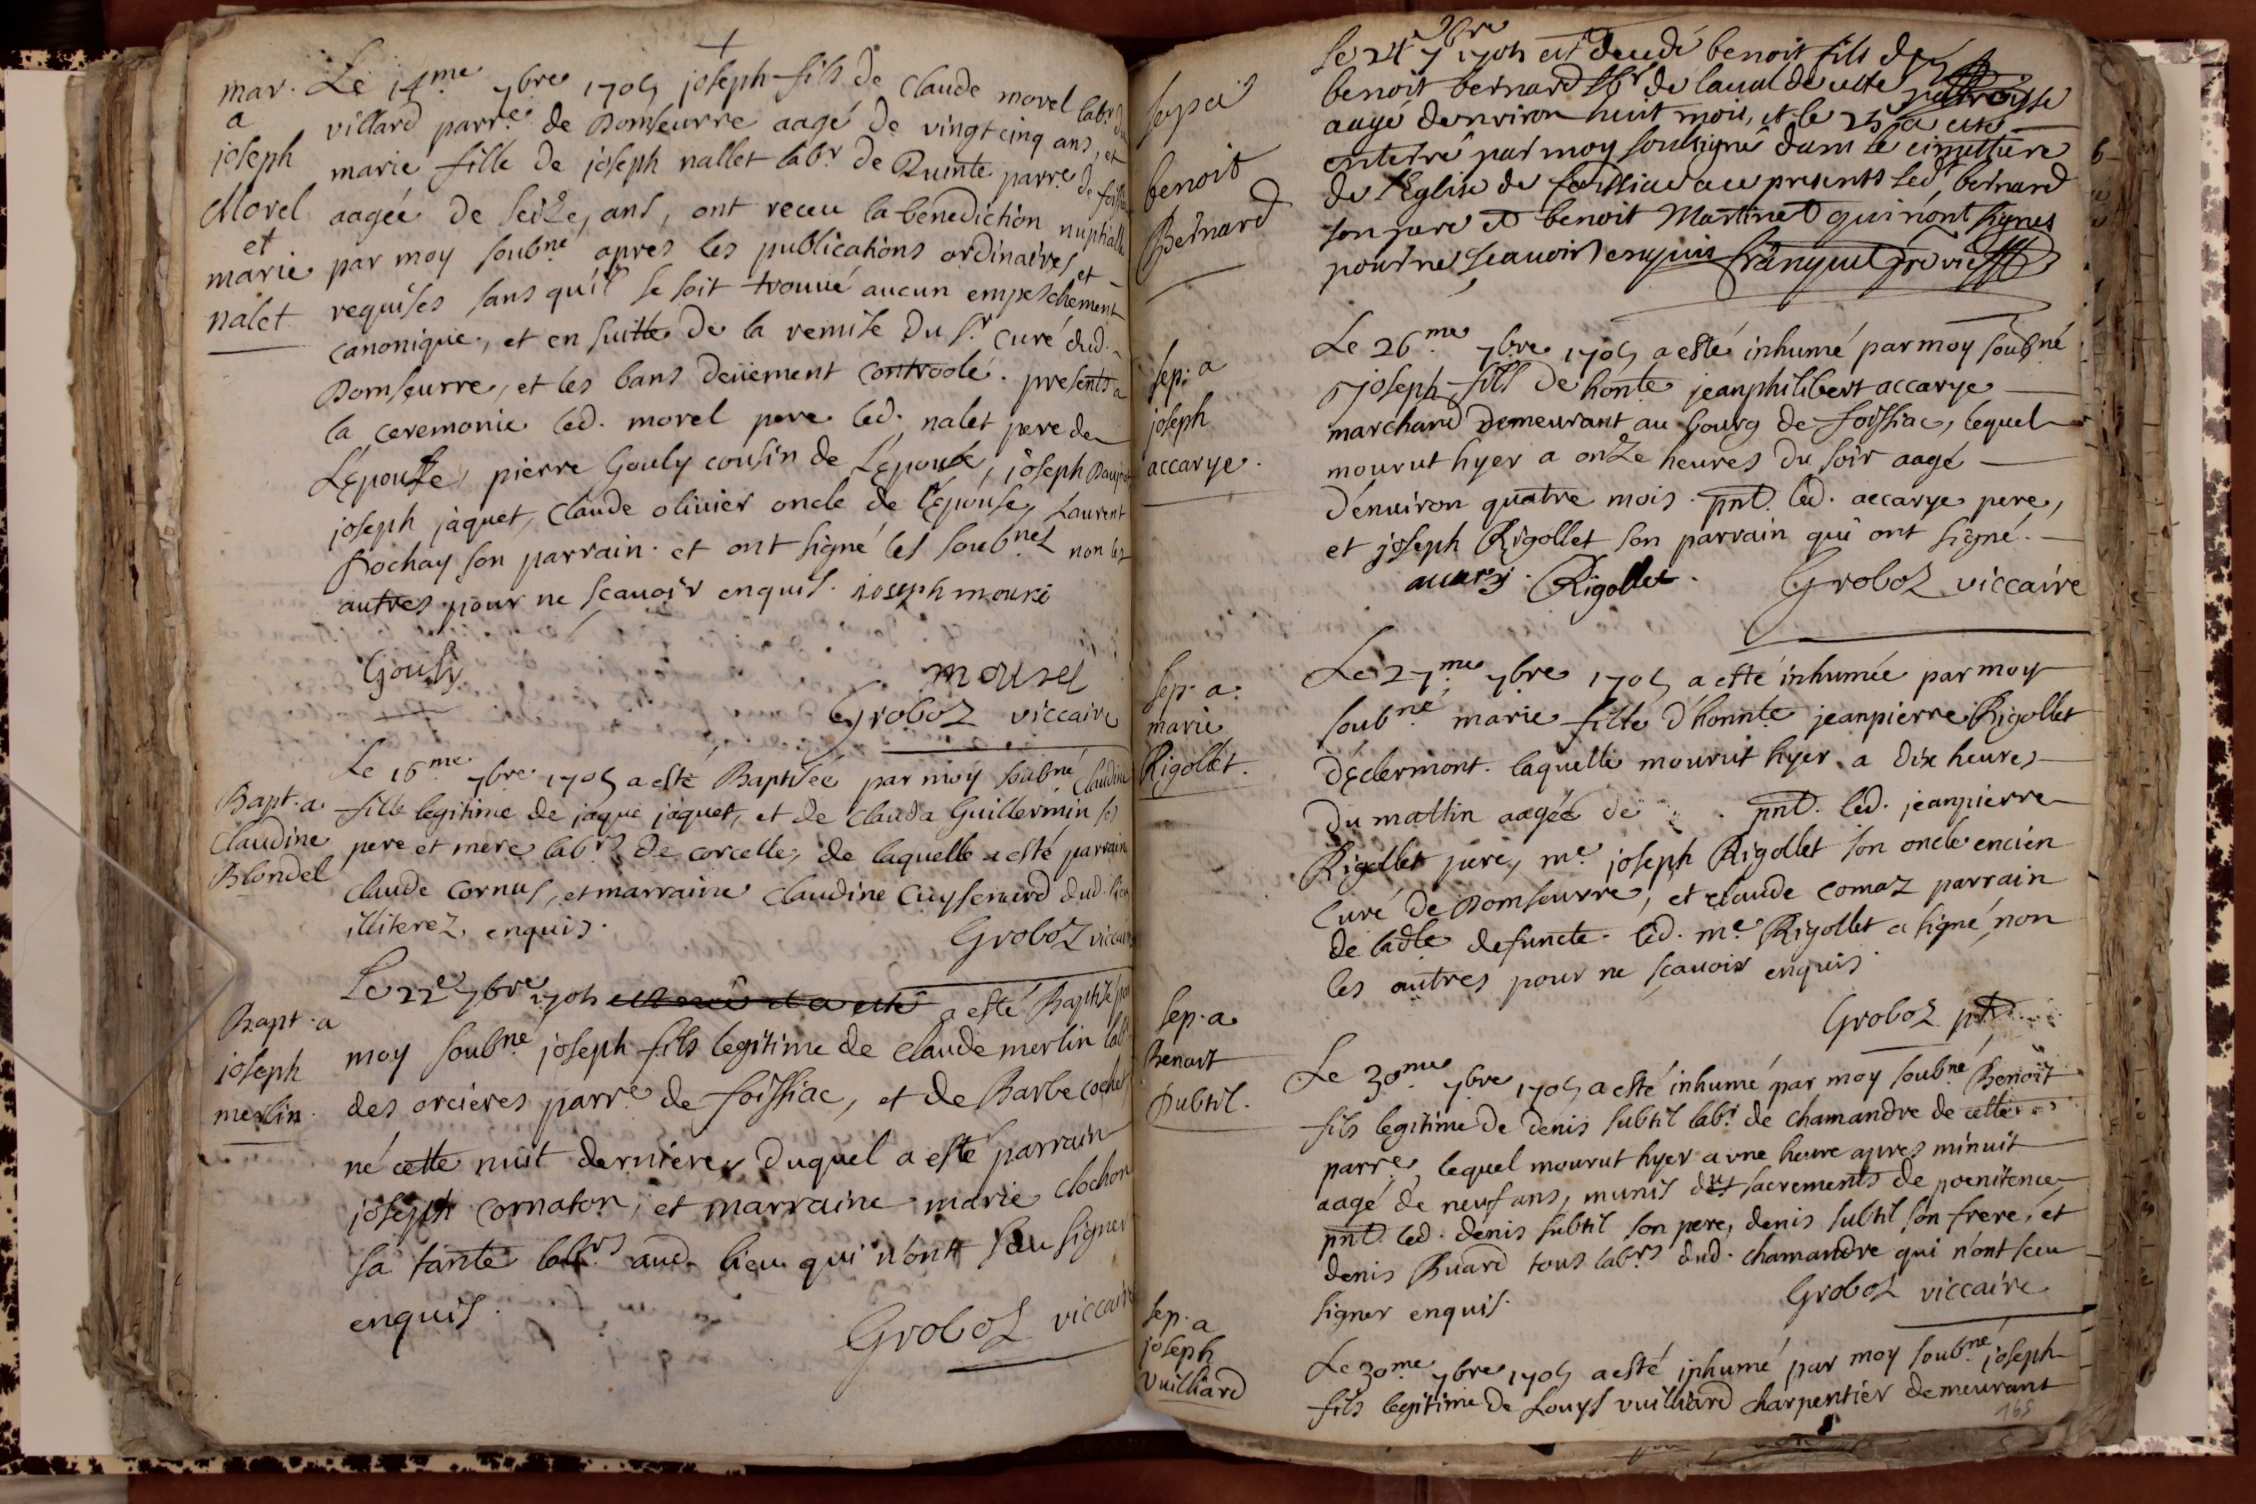 mar. a
joseph
Morel
et
marie
nalet
Le 14.me 7bre 1705 joseph fils de Claude morel labr. du
villard parre. de Domseurre aagé de vingt cinq ans, et
marie fille de joseph nallet labr de Quinte parre. de foissia
aagée de seize ans, ont receu la benediction nuptialle
par moy soubné. apres les publications ordinaires et
requises sans qu'il se soit trouvé aucun empeschement
canonique, et en suitte de la remise du sr. curé dud.
Domseurre, et les bans deüement controolé. presents a
la ceremonie led. morel pere led. nalet pere de
L'Epouse, pierre Gouly cousin de L'Epouse, joseph
joseph jaquet, Claude olivier oncle de l'Epouse, Laurent
Pochay son parrain. et ont signé les soubnes non les
autres pour ne sçauoir enquis. joseph mouri
Gouly
mourel
Groboz viccaire
Bapt. a
Claudine
Blondel
Le 16.me 7bre 1705 a esté Baptisée par moy soubné Claudine
fille legitime de jaque jaquet, et de Clauda Guillermin ses
pere et mere labrs. de corcelle, de laquelle a esté parrain
Claude Cornus, et marraine Claudine Cuysenard dud. lieu
illiterez. enquis.
Groboz viccaire
Bapt. a
joseph
merlin.
Le 22e 7bre 1705 a esté Baptisé par
moy soubné joseph fils legitime de Claude merlin labr
des orcieres parre. de foissiac, et de Barbe cochet
né cette nuit derniere, duquel a esté parrain
joseph cornaton, et marraine marie clochon
sa tante labrs aud. lieu qui n'ont sceu signer
enquis.
Groboz viccaire
benoit
Bernard
Le 24 7bre 1705 est decedé benoit fils de
benoit bernard lbr de laual de cette parroysse
aagé denviron huit mois, et le 25 a esté
enterré par moy soubsigné dans le cimettiere
de l'Eglise de foissiac presents led. bernard
son pere et benoit Martinet qui n'ont signes
pour ne sçauoir enquis
sep. a
joseph
accarye.
Le 26.me 7bre 1705 a esté inhumé par moy soubné
joseph fils de honte jeanphilibert accarye
marchand demeurant au bourg de foissiac, lequel
mourut hyer a onze heures du soir aagé
d'enuiron quatre mois. pnt. led. accarye pere,
et joseph Rigollet son parrain qui ont signé.
accary. Rigollet.
Groboz viccaire
sep. a.
marie
Rigollet.
Le 27.me 7bre 1705 a esté inhumée par moy
soubné marie fille d'honnte jeanpierre Rigollet
declermont. laquelle mourut hyer a dix heures
du mattin aagée de . pnt. led. jeanpierre
Rigollet pere, me. joseph Rigollet son oncle encien
Curé de Domseurre, et claude comaz parrain
de ladte defuncte. led. me Rigollet a signé, non
les autres pour ne sçauoir enquis.
Groboz
sep. a
Benoit
Subtil.
Le 30.me 7bre 1705 a esté inhumé par moy soubné Benoit
fils legitime de Denis subtil labr. de chamandre de cette
parre, lequel mourut hyer a vne heure apres minuit
aagé de neuf ans, munis des sacrements de poenitence
pnt. led. denis subtil son pere, denis subtil son frere, et
denis Buard tous labrs dud. chamandre qui n'ont sceu
signer enquis.
Groboz viccaire
sep. a
joseph
vuilliard
Le 30.me 7bre 1705 a esté inhumé par moy soubné joseph
fils legitime de Louys vuilliard charpentier demeurant
165